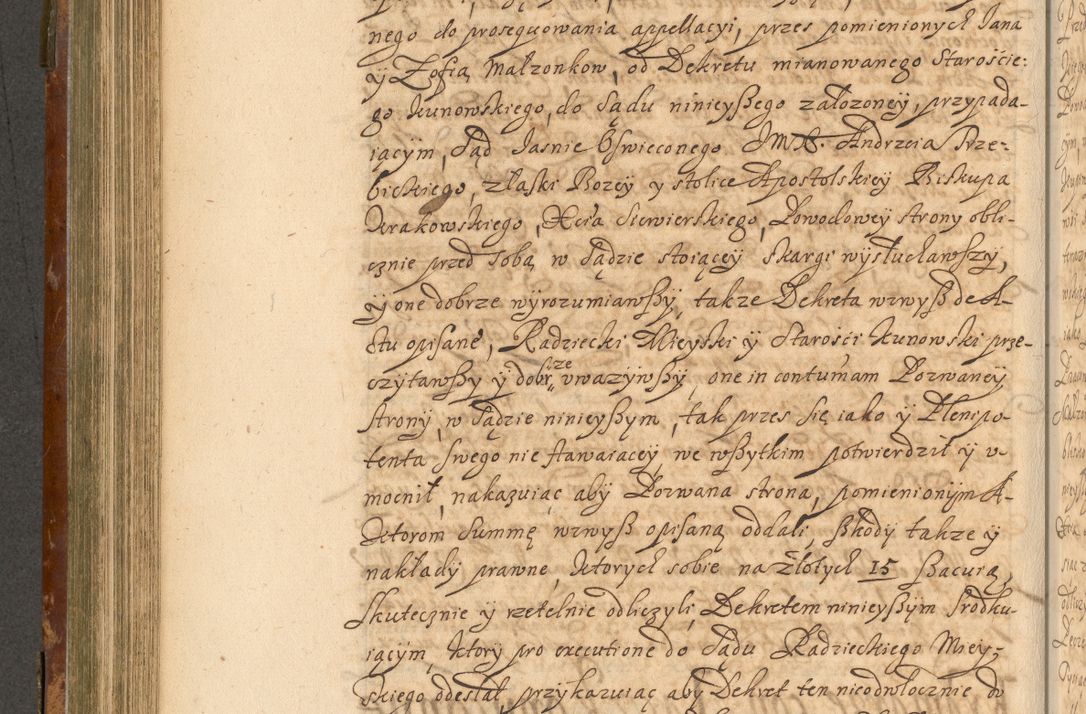 nego do proseguowania appellacyi, przes pomienionych Jana
y Zofią Małzonkow, od Dekretu mianowanego Starośćie:
go Kunowskiego, do Sądu ninieyßego załozoneÿ, przypada-
iącÿm, Sąd Jasnie Oświeconego JMX. Andrzeia Trze-
bickiego, złaski Bozeÿ y stolice Apostolskieÿ Biskupa
Krakowskiego, Xcia Siewierskiego, Powodoweÿ strony obli-
cznie przed sobą w sądzie stoiąceÿ skargi wysłuchawszy,
ÿ one dobrze wÿrozumiawßÿ, takze Dekreta wzwyß de A-
ctu opisane, Radziecki Mieyski ÿ Starośći Kunowski prze-
czÿtawßÿ ÿ dobrze uwazÿwßÿ, one in contumam Pozwaneÿ
stronÿ, w sądzie ninieyßÿm, tak przes się iako ÿ Plenipo-
tenta swego nie stawaiaceÿ, we wßytkim potwierdził ÿ u-
mocnił, nakazuiąc abÿ Pozwana strona, pomienionÿm A-
ktorom Summę wzwÿß opisaną oddali, ßkodÿ takze ÿ
nakładÿ prawne, ktorÿch sobie na złotÿch 15 ßacuią,
skutecznie ÿ rzetelnie odliczÿli, Dekretem ninieyßÿm srodku-
iącÿm, ktorÿ pro executione do Sądu Radzieckiego Miey-
skiego odesłał, przÿkazuiąc abÿ Dekret ten nieodwłocznie do